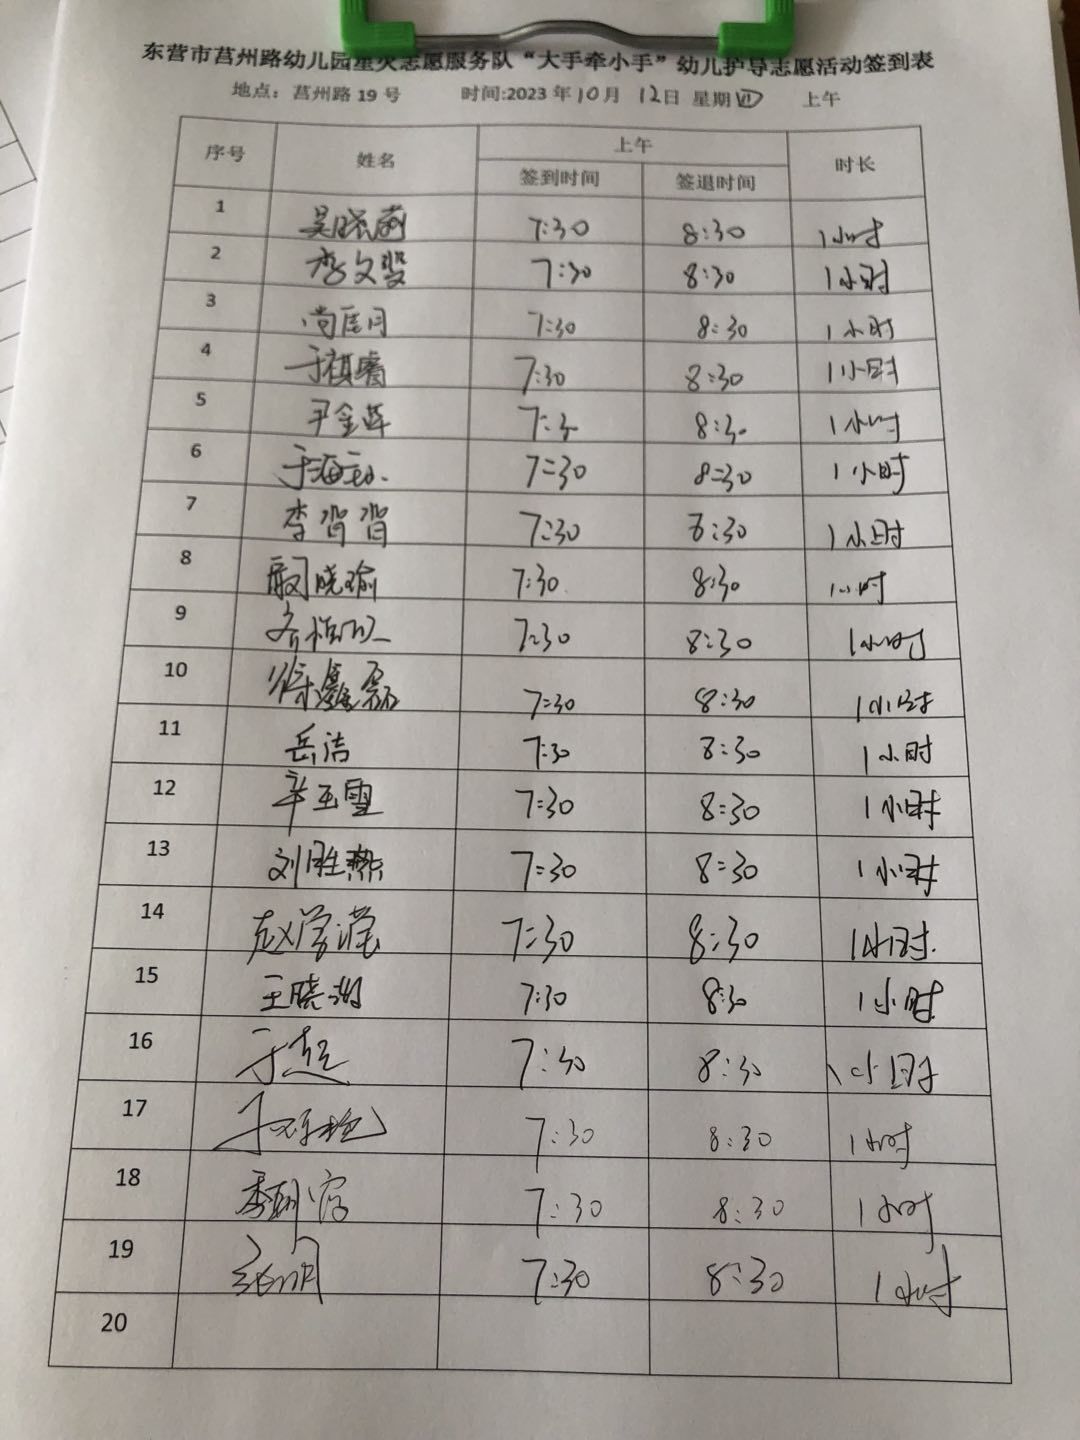 东营市莒州路幼儿园星火志愿服务队“大手牵小手”幼儿护导志愿活动签到表
地点：莒州路 19 号 时间:2023 年10月 12日 星期四 上午
序号 姓名 上午 时长
签到时间 签退时间
1 吴晓 7:30 8:30 1小时
2 李文 7:30 8:30 1小时
3 尚 月 7:30 8:30 1小时
4 于祺睿 7:30 8:30 1小时
5 尹金莲 7:3 8:30 1小时
6 于海 7:30 8:30 1小时
7 李 7:30 8:30 1小时
8 殷晓瑜 7:30 8:30 1小时
9 齐 7:30 8:30 1小时
10 徐鑫磊 7:30 8:30 1小时
11 岳洁 7:30 8:30 1小时
12 辛玉雪 7:30 8:30 1小时
13 刘胜燕 7:30 8:30 1小时
14 赵莹莹 7:30 8:30 1小时.
15 王晓 7:30 8:30 1小时
16 于超 7:30 8:30 1小时
17 于 艳 7:30 8:30 1小时
18 李 7:30 8:30 1小时
19 7:30 8:30 1小时
20